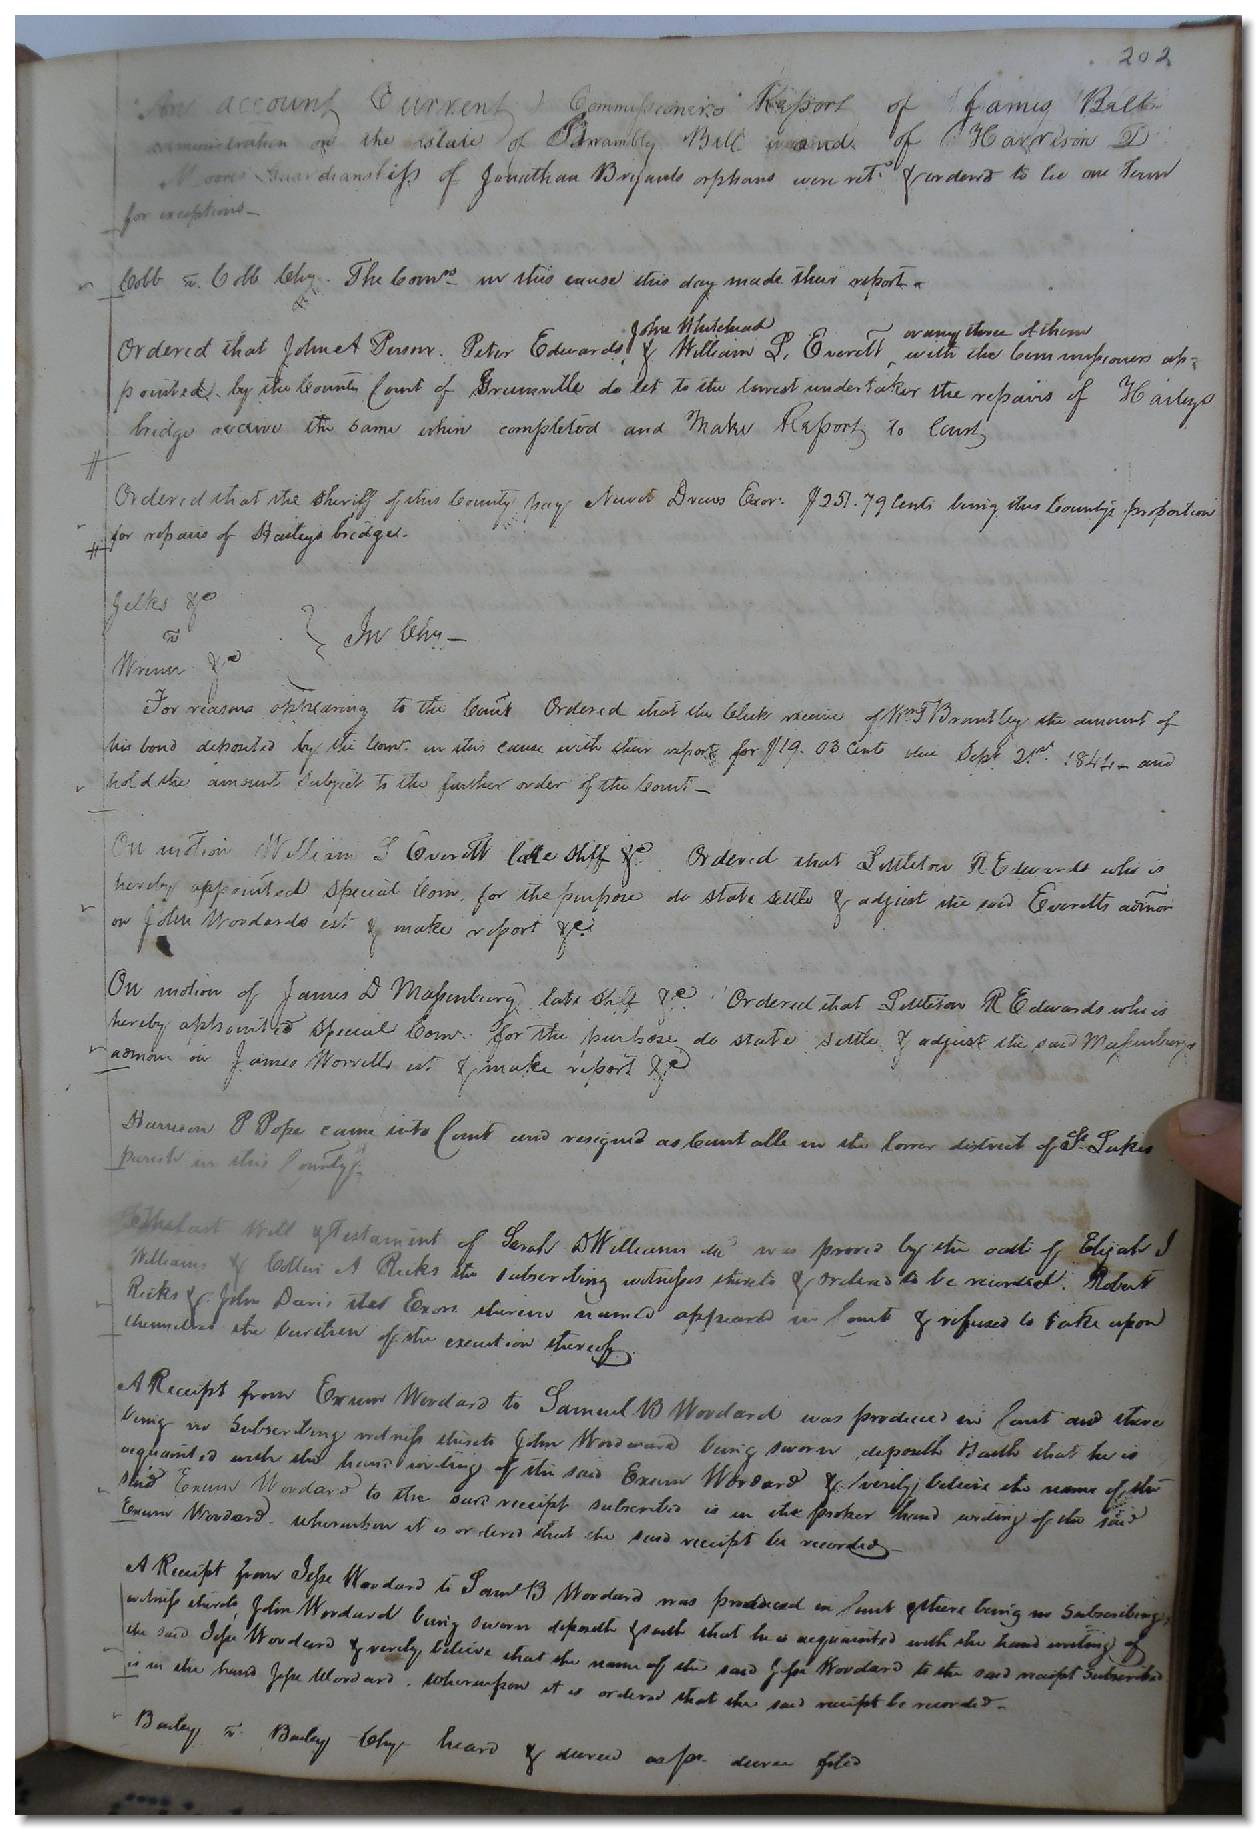 202
An account Current Commissioners Report of James Bell
administration on the estate of Brambly Bell and of Harrison D
Moores Guardianship of Jonathan Bryants orphans were retd & ordered to lie one term
for exceptions
Cobb v. Cobb Chy. The Comrs in this cause this day made their report
John Whitehead or any three of them
Ordered that John A Person. Peter Edwards & William L. Everett with the Commissioners ap=
pointed by the County Court of Greensville do let to the lowest undertaker the repairs of Haileys
bridge receive the same when completed and Make Report to Court
Ordered that the Sheriff of this County pay Newit Drews Exor. $251.79 Cents being this County's proportion
for repairs of Haileys bridge.
Jelks &c
v
&c
In Chy
For reasons appearing to the Court Ordered that the Clerk receive of Wm T Brantley the amount of
his bond deposited by the Comr. in this cause with their report for $19.03 Cents due Sept 21st 1844 and
hold the amount subject to the further order of the Court
On motion William L Everett late Shff &c Ordered that Littleton R Edwards who is
hereby appointed Special Com. for the purpose do state settle & adjust the said Everetts admon
on John Woodards est & make report &c
On motion of James D Massenburg late Shff &c Ordered that Littleton R Edwards who is
hereby appointed Special Com. for the purpose do state settle & adjust the said Massenburgs
admon on James Worrells est & make report &c
Harrison P Pope came into Court and resigned as Constable in the lower district of St. Lukes
parish in this County
The last Will & Testament of Sarah D Williams decd was proved by the oath of Elijah J
Williams & A Ricks the subscribing witnesses thereto & ordered to be recorded. Robert
Ricks & John Davis the Exors therein named appeared in Court & refused to take upon
themselves the burthen of the execution thereof
A Receipt from Exum Woodard to Samuel B Woodard was produced in Court and there
being no Subscribing witness thereto John Woodward being sworn deposeth & saith that he is
acquainted with the hand writing of the said Exum Woodard & verily believe the name of the
said Exum Woodard to the said receipt subscribed is in the proper hand writing of the said
Exum Woodard. whereupon it is ordered that the said receipt be recorded
A Receipt from Jesse Woodard to Saml B Woodard was produced in Court & there being no Subscribing
witness thereto, John Woodard being sworn deposeth & saith that he is acquainted with the hand writing of
the said Jesse Woodard & verily believe that the name of the said Jesse Woodard to the said receipt Subscribed
is in the hand Jesse Woodard. whereupon it is ordered that the said receipt be recorded
Bailey v. Bailey Chy heard & decree as pr. decree filed